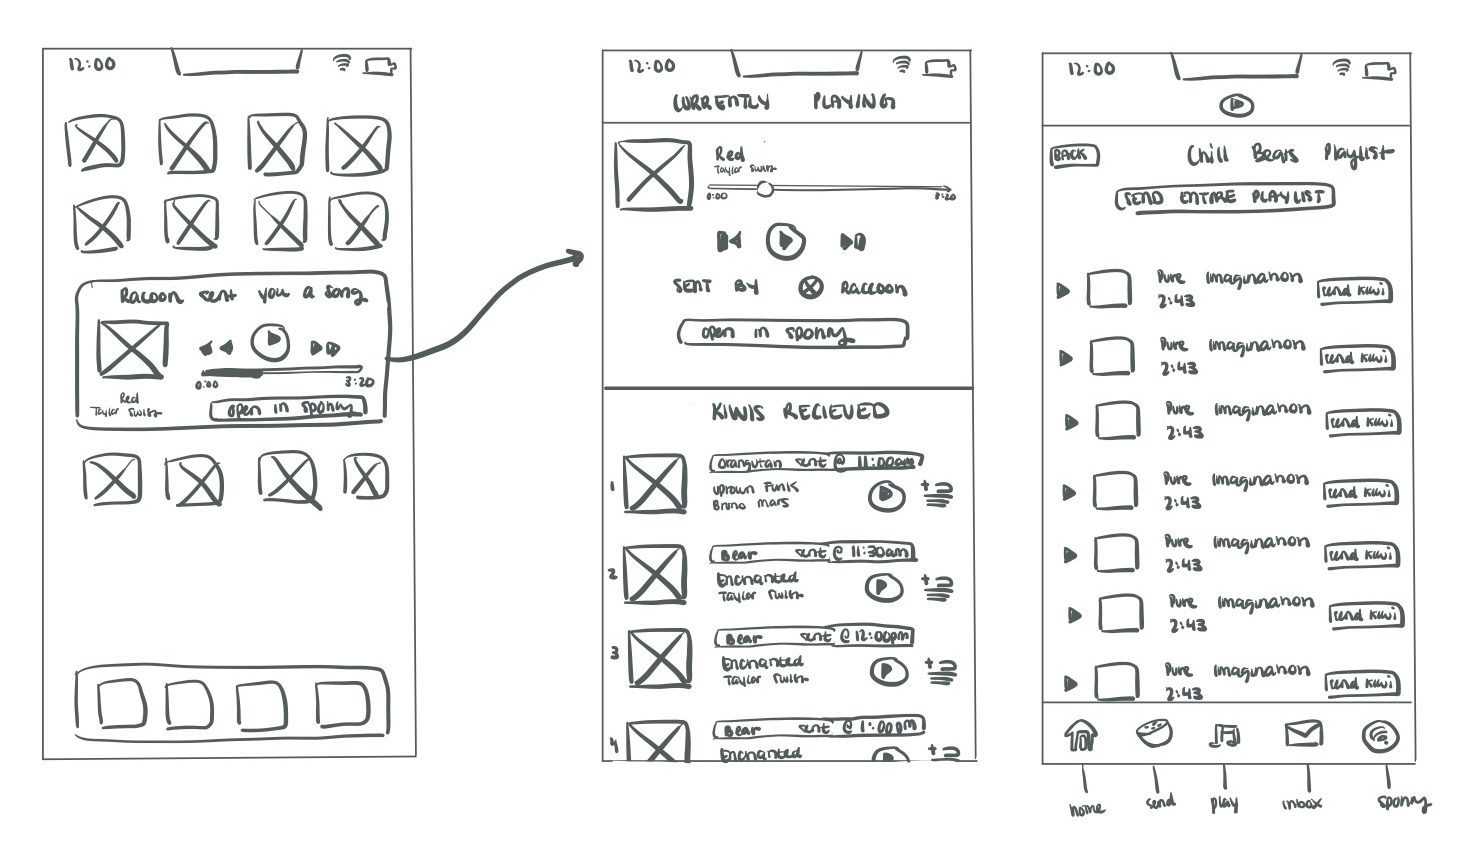 12:00
Racoon sent you a song
0:00 3:20
Red
Taylor Swift
open in spotify
12:00
CURRENTLY PLAYING
Red
Taylor Swift
0:00 3:20
SENT BY RACCOON
open in spotify
KIWIS RECIEVED
1
Orangutan sent @ 11:00am
Uptown Funk
Bruno Mars
2
Bear sent @ 11:30am
Enchanted
Taylor Swift
3
Bear sent @ 12:00pm
Enchanted
Taylor Swift
4
Bear sent @ 1:00pm
Enchanted
12:00
BACK
Chill Bears Playlist
SEND ENTIRE PLAYLIST
Pure Imagination
2:43
send kiwi
Pure Imagination
2:43
send kiwi
Pure Imagination
2:43
send kiwi
Pure Imagination
2:43
send kiwi
Pure Imagination
2:43
send kiwi
Pure Imagination
2:43
send kiwi
Pure Imagination
2:43
send kiwi
home send play inbox spotify